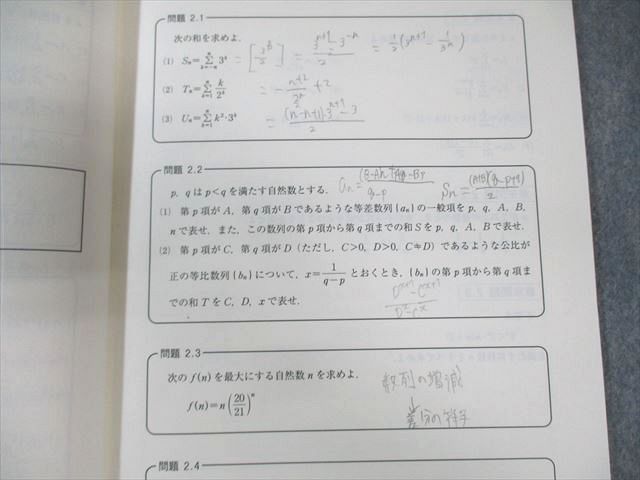 問題 2.1
次の和を求めよ.
(1) Sₙ=Σ_{k=-n}^{n} 3ᵏ = [3ᵏ/2] = (3ⁿ⁺¹-3⁻ⁿ)/2 = 1/2(3ⁿ⁺¹-1/3ⁿ)
(2) Tₙ=Σ_{k=1}^{n} k/2ᵏ = -(n+2)/2ⁿ+2
(3) Uₙ=Σ_{k=1}^{n} k²·3ᵏ
問題 2.2
p, q は p<q を満たす自然数とする.
(1) 第 p 項が A, 第 q 項が B であるような等差数列 {aₙ} の一般項を p, q, A, B,
n で表せ. また, この数列の第 p 項から第 q 項までの和 S を p, q, A, B で表せ.
(2) 第 p 項が C, 第 q 項が D (ただし, C>0, D>0, C≠D) であるような公比が
正の等比数列 {bₙ} について, x=1/(q-p) とおくとき, {bₙ} の第 p 項から第 q 項ま
での和 T を C, D, x で表せ.
(Dˣ⁺¹-Cˣ⁺¹)/(Dˣ-Cˣ)
問題 2.3
次の f(n) を最大にする自然数 n を求めよ.
f(n)=n(20/21)ⁿ
数列の増減
差分の符号
問題 2.4